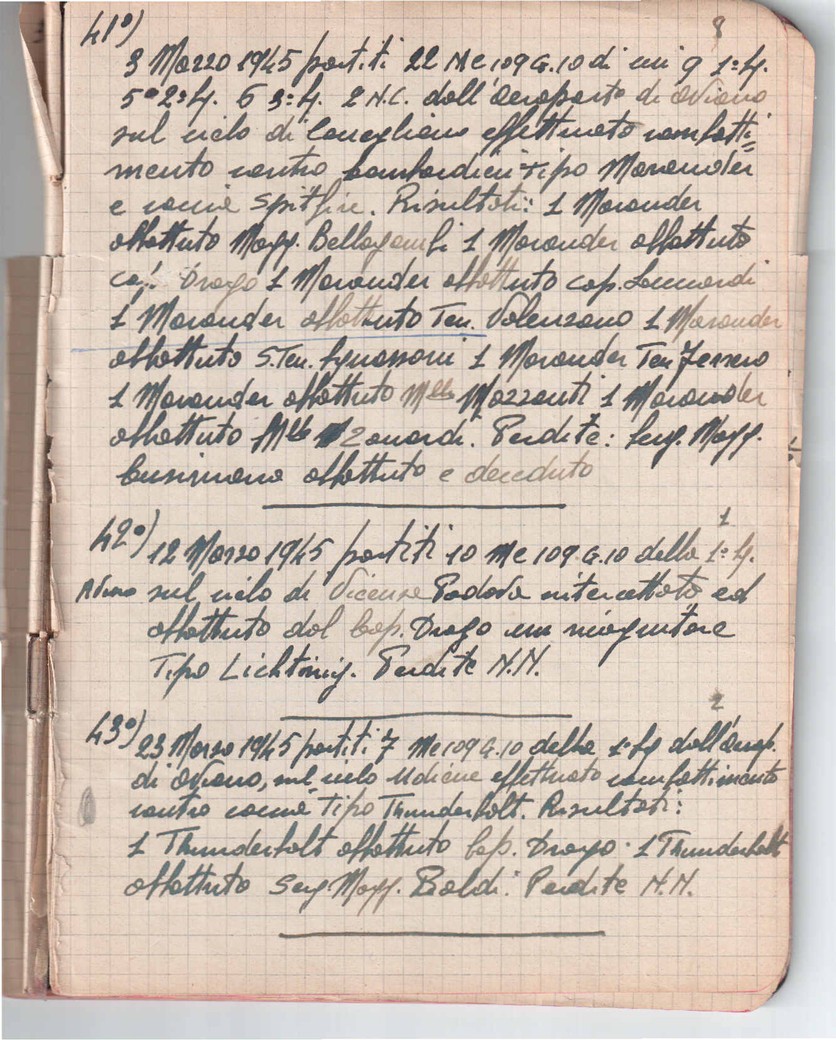 8
41°)
3 Marzo 1945 partiti 22 Me 109 G.10 di cui 9 1ª Sq.
5 2ª Sq. 6 3ª Sq. 2 N.C. dall'aeroporto di Aviano
sul cielo di Conegliano effettuato combatti=
mento contro bombardieri tipo Marauder
e caccia Spitfire. Risultati: 1 Marauder
abbattuto Magg. Bellagambi 1 Marauder abbattuto
cap. Drago 1 Marauder abbattuto cap.
1 Marauder abbattuto Ten. Valenzano 1 Marauder
abbattuto S.Ten. 1 Marauder Ten Ferrero
1 Marauder abbattuto M.llo Mazzanti 1 Marauder
abbattuto M.llo Zanardi. Perdite: Serg. Magg.
abbattuto e deceduto
1
42°) 12 Marzo 1945 partiti 10 Me 109 G.10 della 1ª Sq.
Aviano sul cielo di Vicenza Padova intercettato ed
abbattuto dal Cap. Drago un ricognitore
Tipo Lichtinig. Perdite N.N.
2
43°) 23 Marzo 1945 partiti 7 Me 109 G.10 della 1ª Sq dall'aerop.
di Aviano, nel cielo Udine effettuato combattimento
contro caccia Tipo Thunderbolt. Risultati:
1 Thunderbolt abbattuto Cap. Drago. 1 Thunderbolt
abbattuto Serg Magg. Baldi. Perdite N.N.